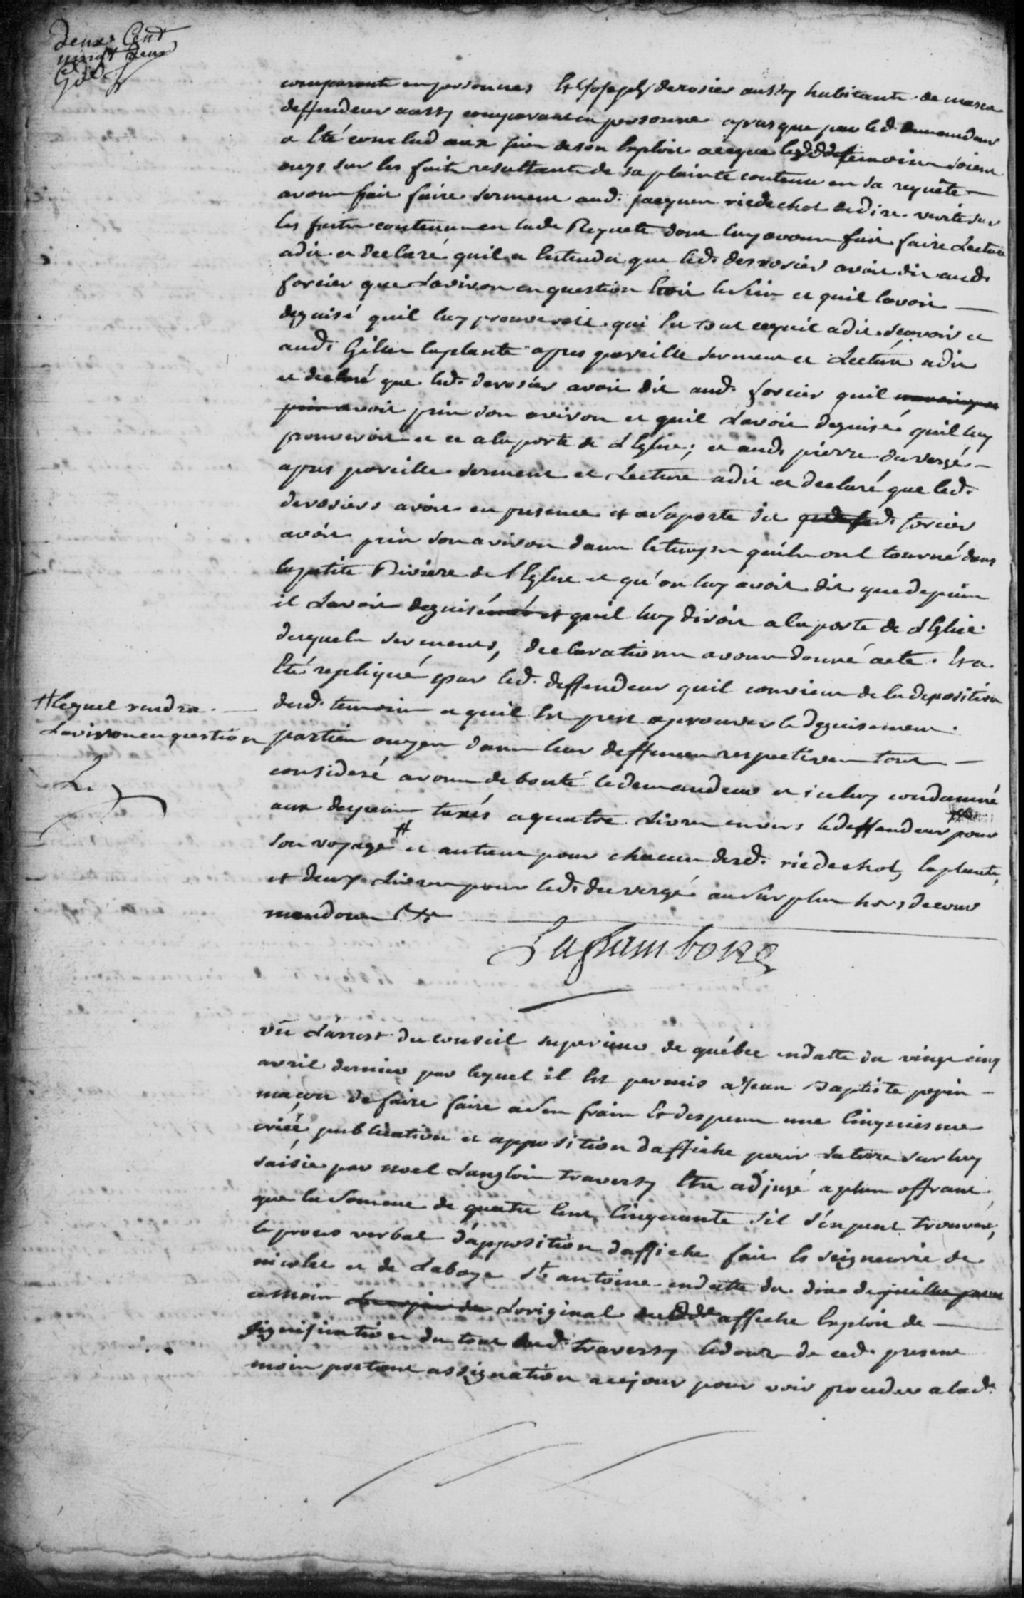 deux Cent
vingt deux
comparante en personnes Et Joseph derosier aussy habitante de masca
deffendeur aussy comparant en personne apres que par led. demandeur
a Eté conclud aux fin de son Exploit aceque lesdd. temoins soient
ouys sur les faits resultants de sa plainte contenu en sa requête
avons fait faire serment aud. jacques riedechot dedire verité sur
les faits contenu en lade Requete dont luy avons fait faire Lecture
adit et declaré quil a Entendu que led. desrosiers avoit dit aud.
forcier que Laviron en question Etoit le sien et quil lavoit
deguisé quil luy prouveroit qui Est tout cequil adit sçavoir et
aud. Gilles laplante apres pareille serment et Lecture adit
et declaré que led. derosiers avoit dit aud. forcier quil
avoit prin son aviron et quil Lavoit deguisé quil luy
prouveroit et ce a la porte de LEglise; et aud. pierre duvergé
apres pareille serment et Lecture adit et declaré que led.
derosiers avoit en presence et alaporte dit forcier
avoir prin son aviron dans le temps quils ont tourné dans
la petite Riviere de l'Eglise et qu'on luy avoit dit que depuis
il Lavoit deguisé et quil luy disoit a la porte de LEglise
desquels serments, declarations avons donné acte. Et a
Eté repliqué par led. deffendeur quil convient de la deposition
desd. temoins et quil Est prest aprouver le deguisement.
parties ouyes dans leur deffences respectives tout
consideré avons debouté le demandeur et iceluy condamné
aux depens taxés a quatre Livres envers le deffendeur pour
son voyage # et autant pour chacun desd. riedechot, laplante,
et deux Livres pour led. duvergé au surplus hors de cour
mandons &c
# lequel rendra
Laviron en question
Laframbois
vû Larrest du conseil superieur de québec endatte du vingt cinq
avril dernier par lequel il Est permis a Jean Baptiste pepin
maçon de faire faire a ses frais Et despens une Cinquiesme
criée publication et apposition daffiche pour la terre sur luy
saisie par noel Langlois traversy Etre adjugé a plus offrant
que la Somme de quatre Cent Cinquante s'il s'en peut trouver,
le proces verbal d'apposition daffiche fait Es seigneurie de
nicolet et de Labaye St. antoine endatte du dix de
ce mois Loriginal affiche Exploit de
signification du tout aud. traversy ledouze de ced. present
mois portant assignation acejour pour voir proceder alad.